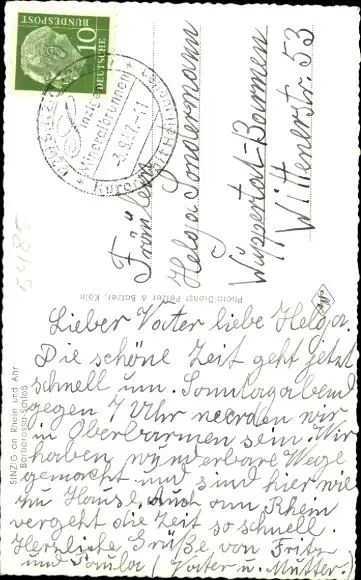 DEUTSCHE
BUNDESPOST
10
Sinziger
Mineralbrunnen
-2.9.57.-11
Fräulein
Helga Sondermann
Wuppertal-Barmen
Wittenerstr. 53
Photo-Dienst Pelzer & Balzer, Köln
Agfa
5485
SINZIG an Rhein und Ahr
Barbarossa-Schloß
Lieber Vater liebe Helga.
Die schöne Zeit geht jetzt
schnell um. Sonntagabend
gegen 7 Uhr werden wir
in Oberbarmen sein. Wir
haben wunderbare Wege
gemacht und sind hier wie
zu Hause. Auch am Rhein
vergeht die Zeit so schnell.
Herzliche Grüße von Fritz
und (Vater u. Mutter.)